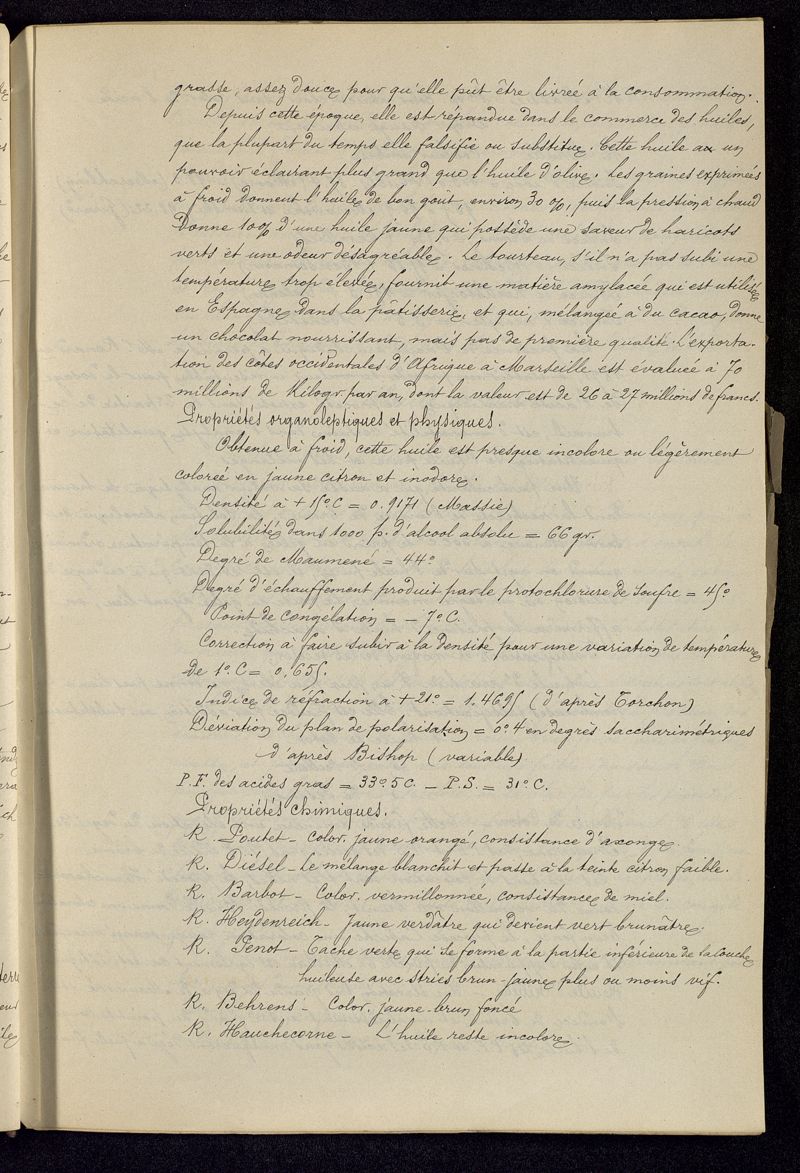 grasse, assez douce pour qu'elle pût être livrée à la consommation.
Depuis cette époque, elle est répandue dans le commerce des huiles,
que la plupart du temps elle falsifie ou substitue. Cette huile a un
pouvoir éclairant plus grand que l'huile d'olive. Les graines exprimées
à froid donnent l'huile de bon goût, environ 30 %, puis la pression à chaud
donne 10% d'une huile jaune qui possède une saveur de haricots
verts et une odeur désagréable. Le tourteau, s'il n'a pas subi une
température trop élevée, fournit une matière amylacée qui est utilisée
en Espagne dans la pâtisserie, et qui, mélangée à du cacao, donne
un chocolat nourrissant, mais pas de première qualité. L'exporta-
tion des côtes occidentales d'Afrique à Marseille est évaluée à 70
millions de kilogr. par an, dont la valeur est de 26 à 27 millions de francs.
Propriétés organoleptiques et physiques.
Obtenue à froid, cette huile est presque incolore ou légèrement
colorée en jaune citron et inodore.
Densité à + 15° C = 0.9171 (Massie)
Solubilité dans 1000 p. d'alcool absolu = 66 gr.
Degré de Maumené = 44°
Degré d'échauffement produit par le protochlorure de soufre = 45°
Point de congélation = - 7° C.
Correction à faire subir à la densité pour une variation de température
de 1° C = 0,655.
Indice de réfraction à + 21° = 1.4695 (d'après Torchon)
Déviation du plan de polarisation = 0°.4 en degrés saccharimétriques
d'après Bishop (variable)
P.F. des acides gras = 33°.5 C. - P.S. = 31° C.
Propriétés chimiques.
R. Poutet - Color. jaune orangé, consistance d'axonge.
R. Diésel - Le mélange blanchit et passe à la teinte citron faible.
R. Barbot - Color. vermillonnée, consistance de miel.
R. Heydenreich - Jaune verdâtre qui devient vert brunâtre.
R. Penot - Tache verte qui se forme à la partie inférieure de la couche
huileuse avec stries brun-jaune plus ou moins vif.
R. Behrens - Color. jaune-brun foncé
R. Hauchecorne - L'huile reste incolore.